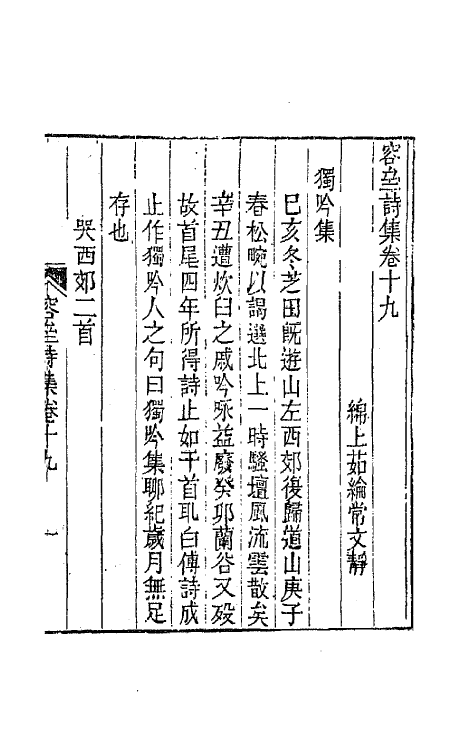 容㙓詩集卷十九
綿上茹綸常文靜
獨吟集
己亥冬芝田旣遊山左西郊復歸道山庚子
春松畹以謁選北上一時騷壇風流雲散矣
辛丑遭炊臼之戚吟咏益廢癸卯蘭谷又歿
故首尾四年所得詩止如干首取白傅詩成
止作獨吟人之句曰獨吟集聊紀歲月無足
存也
哭西郊二首
容㙓詩集卷十九
一